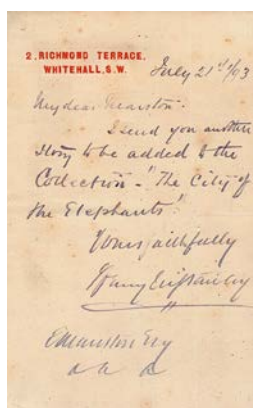 2, RICHMOND TERRACE,
WHITEHALL, S.W.
July 21st /93
My dear Marston.
I send you another
story to be added to the
Collection - "The City of
the Elephants".
Yours faithfully
Henry M Stanley
E Marston Esq